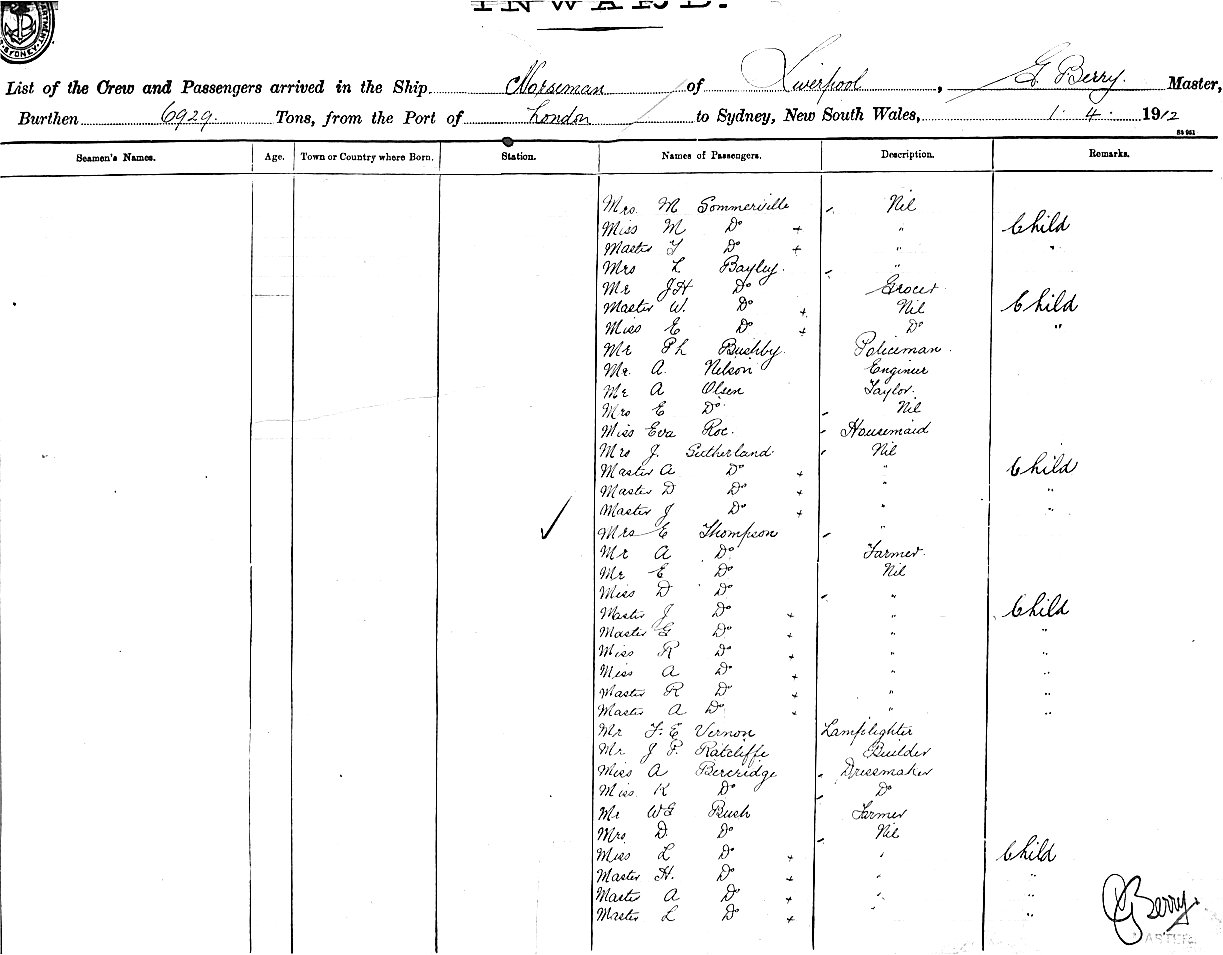 INWARD.
DEPARTMENT SYDNEY
List of the Crew and Passengers arrived in the Ship Norseman of Liverpool, G. Berry. Master,
Burthen 6929. Tons, from the Port of London to Sydney, New South Wales, 1. 4. 1912
Seamen's Names. Age. Town or Country where Born. Station. Names of Passengers. Description. Remarks.
Mrs. M Sommerville Nil
Miss M Do + " Child
Master T Do + " "
Mrs L Bayley. "
Mr J H Do Grocer
Master W. Do + Nil Child
Miss E Do + Do "
Mr Ph Bushby. Policeman.
Mr. A. Nilson Engineer
Mr A Olsen Taylor.
Mrs E Do Nil
Miss Eva Roe. Housemaid
Mrs J. Sutherland Nil
Master A Do + " Child
Master D Do + " "
Master J Do + " "
✓ Mrs E Thompson "
Mr A Do Farmer.
Mr E Do Nil
Miss D Do "
Master J Do + " Child
Master G Do + " "
Miss R Do + " "
Miss A Do + " "
Master R Do + " "
Master A Do + " "
Mr F. E Vernon Lamplighter
Mr. J P. Ratcliffe Builder
Miss A Bercridge Dressmaker
Miss K Do Do
Mr WG Bush Farmer
Mrs. D. Do Nil
Miss L Do + " Child
Master H. Do + " "
Master A Do + " "
Master L Do + " "
G Berry.
MASTER.